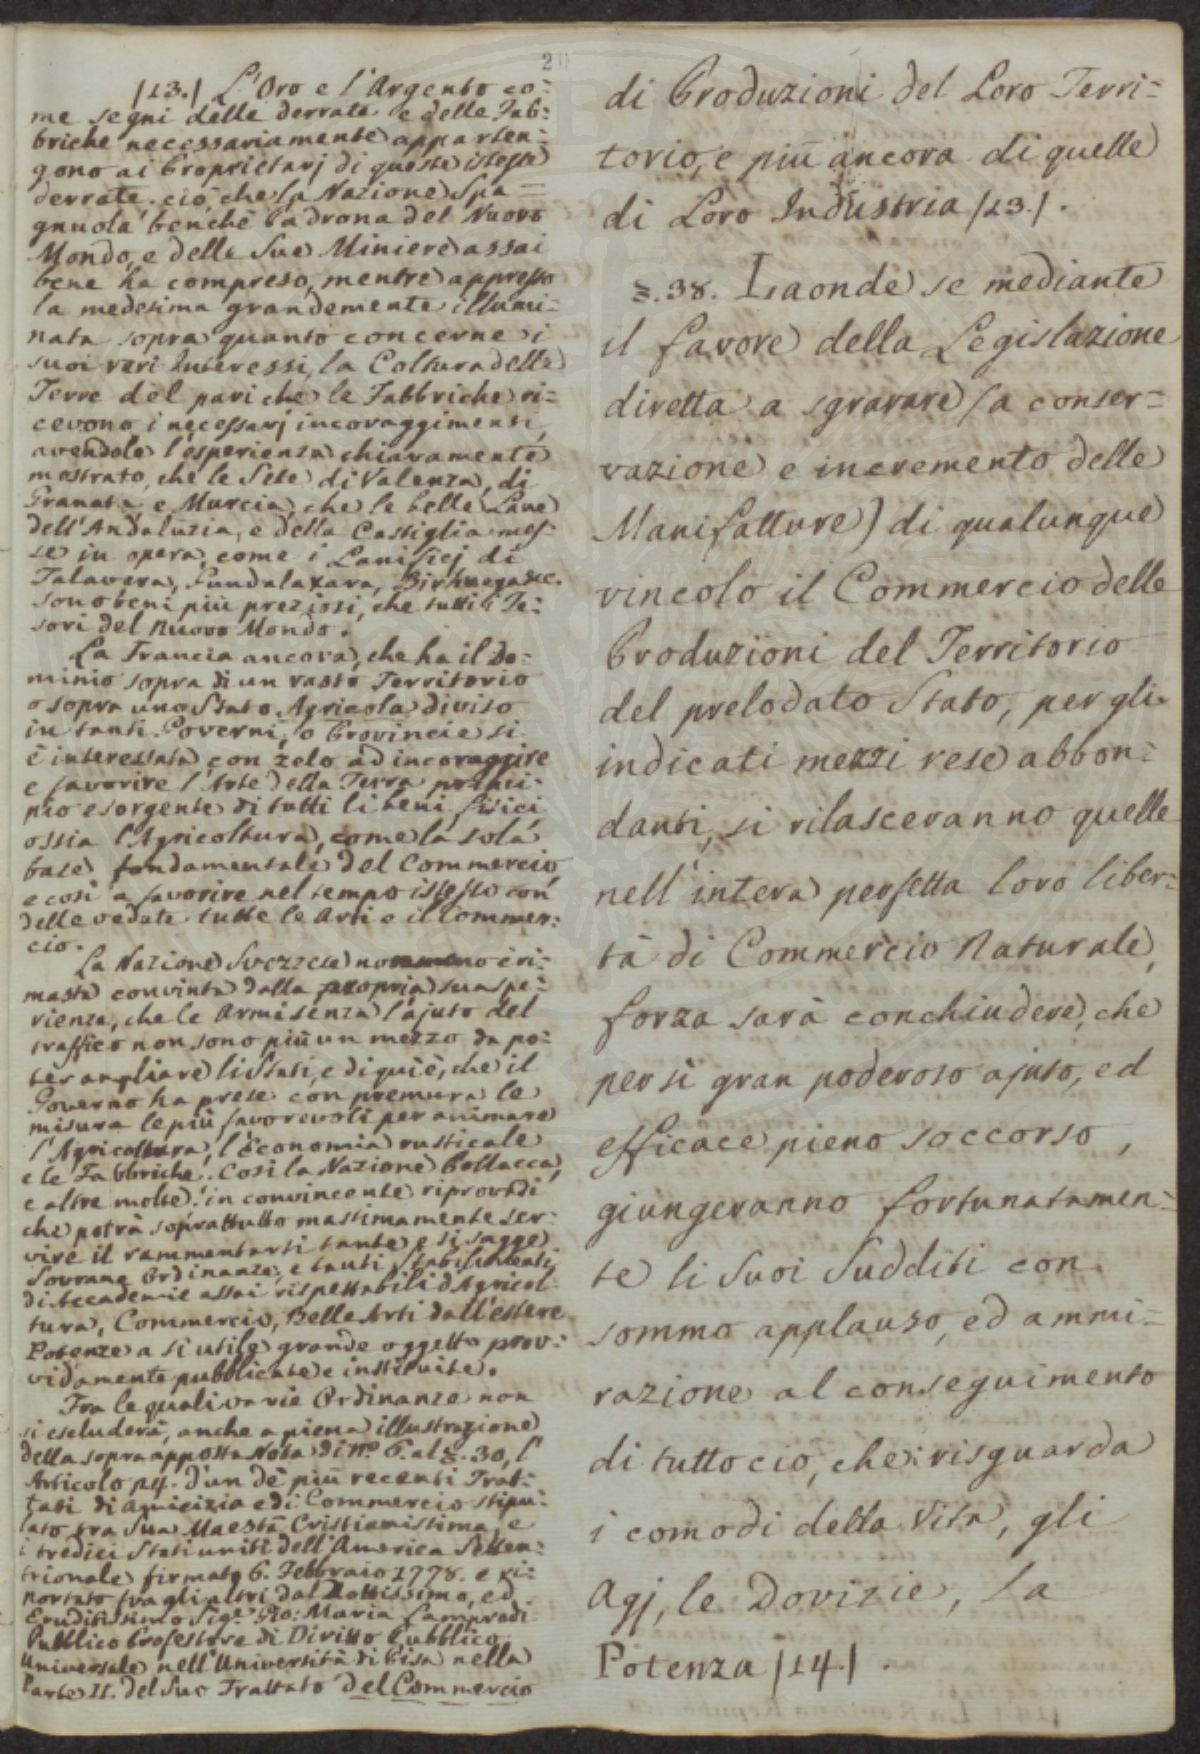 20
/13./ L'Oro e l'Argento co=
me segni delle derrate e delle Fab=
briche necessariamente apparten=
gono ai Proprietarj di queste istesse
derrate. ciò, che la Nazione Spa=
gnuola benchè Padrona del Nuovo
Mondo, e delle Sue Miniere assai
bene ha compreso, mentre appresso
la medesima grandemente illumi=
nata sopra quanto concerne i
suoi veri Interessi, la Coltura delle
Terre del pari che le Fabbriche ri=
cevono i necessarj incoraggimenti,
avendole l'esperienza chiaramente
mostrato, che le Sete di Valenza, di
Granata e Murcia, che le belle Lane
dell'Andaluzia, e della Castiglia mes=
se in opera, come i Lanificj di
Talavera, &c.
sono beni più preziosi, che tutti i Te=
sori del nuovo Mondo.
La Francia ancora, che ha il Do=
minio sopra di un vasto Territorio
o sopra uno Stato Agricola diviso
in tanti Governi, o Provincie si
è interessata con zelo ad incoraggire
e favorire l'Arte della Terra princi=
pio e sorgente di tutti li beni fisici,
ossia l'Agricoltura, come la sola
base fondamentale del Commercio,
e così a favorire nel tempo istesso con
delle vedute tutte le Arti e il Commer=
cio.
La Nazione Svezzese non meno è ri=
masta convinta dalla propria sua spe=
rienza, che le Armi senza l'ajuto del
traffico non sono più un mezzo da po=
ter ampliare li Stati, e di qui è, che il
Governo ha prese con premura le
misure le più favorevoli per animare
l'Agricoltura, l'economia rusticale
e le Fabbriche. Così la Nazione Pollacca,
e altre molte: in convincente riprova di
che potrà soprattutto massimamente ser=
vire il rammentarsi tante e sì sagge
Sovrane Ordinanze, e tanti Stabilimenti
di Accademie assai rispettabili d'Agricol=
tura, Commercio, Belle Arti dall'estere
Potenze a sì utile grande oggetto prov=
vidamente pubblicate e instituite.
Fra le quali varie Ordinanze non
si escluderà, anche a piena illustrazione
della sopra apposta Nota di No. 6. al §. 30, l'
Articolo 14. d'un de' più recenti Trat=
tati di Amicizia e di Commercio stipu=
lato tra Sua Maestà Cristianissima, e
i tredici Stati uniti dell'America Setten=
trionale firmato 6. Febbraio 1778. e ri=
portato fra gli altri dal Dottissimo, ed
Eruditissimo Sigr. Gio: Maria Lampredi
Pubblico Professore di Diritto Pubblico
Universale nell'Università di Pisa nella
Parte II. del Suo Trattato del Commercio
di Produzioni del Loro Terri=
torio, e più ancora di quelle
di Loro Industria /13./.
§. 38. Laonde se mediante
il favore della Legislazione
diretta a sgravare (a conser=
vazione e incremento delle
Manifatture) di qualunque
vincolo il Commercio delle
Produzioni del Territorio
del prelodato Stato, per gli
indicati mezzi rese abbon=
danti, si rilasceranno quelle
nell'intera perfetta loro liber=
tà di Commercio Naturale,
forza sarà conchiudere, che
per sì gran poderoso ajuto, ed
efficace pieno soccorso,
giungeranno fortunatamen=
te li Suoi Sudditi con
sommo applauso, ed ammi=
razione al conseguimento
di tutto ciò, che risguarda
i comodi della Vita, gli
Agj, le Dovizie, la
Potenza /14./.